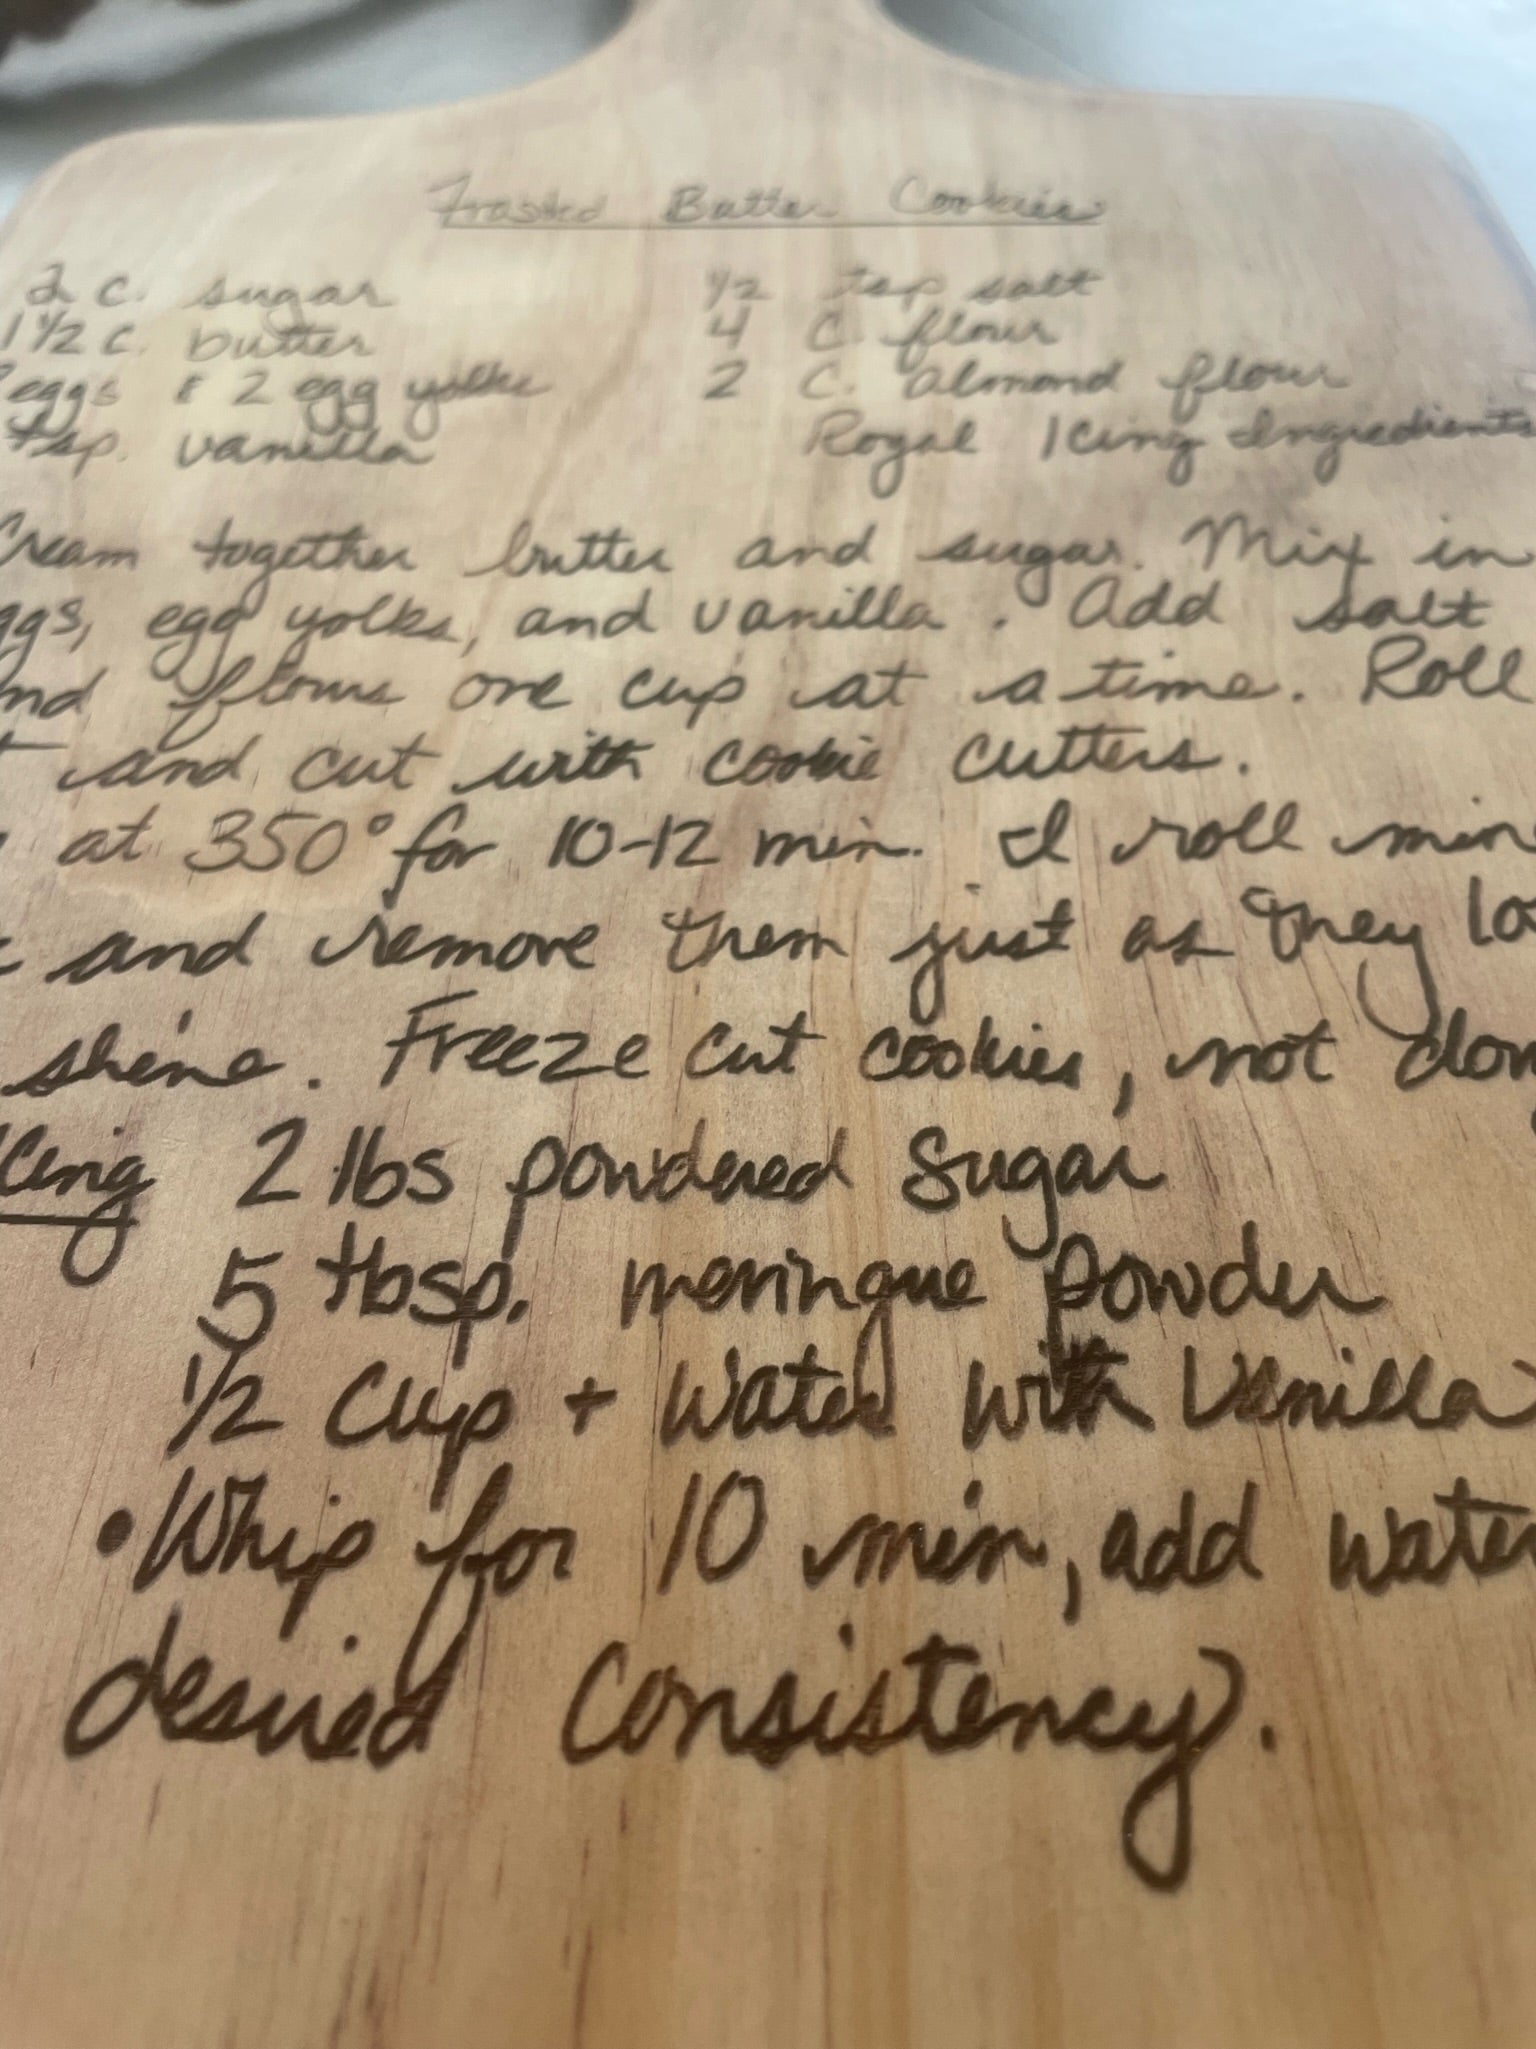 Frosted Butter Cookies
2 c. sugar 1/2 tsp salt
1 1/2 c. butter 4 C. flour
eggs & 2 egg yolks 2 C. almond flour
tsp. vanilla Royal Icing Ingredients
Cream together butter and sugar. Mix in
eggs, egg yolks, and vanilla. Add salt
and flours one cup at a time. Roll
and cut with cookie cutters.
at 350° for 10-12 min. I roll min
and remove them just as they lo
shine. Freeze cut cookies, not dou
Icing 2 lbs powdered Sugar
5 tbsp. meringue powder
1/2 Cup + Water with Vanilla
• Whip for 10 min, add water
desired Consistency.